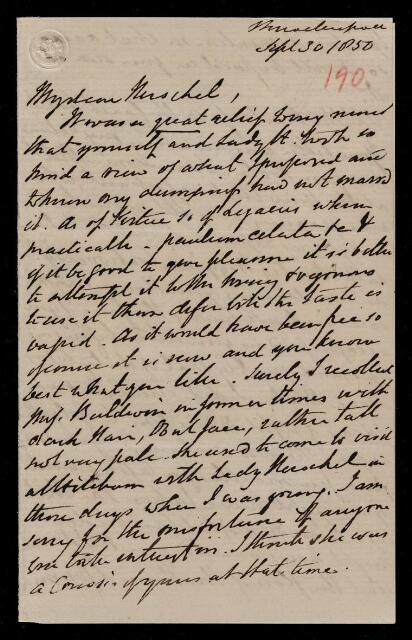 Sept 30 1850
190
My dear Herschel,
It was a great relief to my mind
that yourself and Lady H. took so
kind a view of what I proposed and
to know my clumsiness had not marred
it. As of Virtue so of Legacies when
practicable - paulum celata &c &
if it be good to give pleasure it is better
to attempt it with living
to use it than defer till the taste is
vapid. As it would have been free so
of course it is now and you know
best what you like. Surely I recollect
Miss Baldwin in former times with
dark Hair, Oval face, rather tall
not very pale. She used to come to visit
with Lady Herschel in
those days when I was young. I am
sorry for the misfortune of anyone
you take interest in. I think she was
a Cousin of yours at that time.